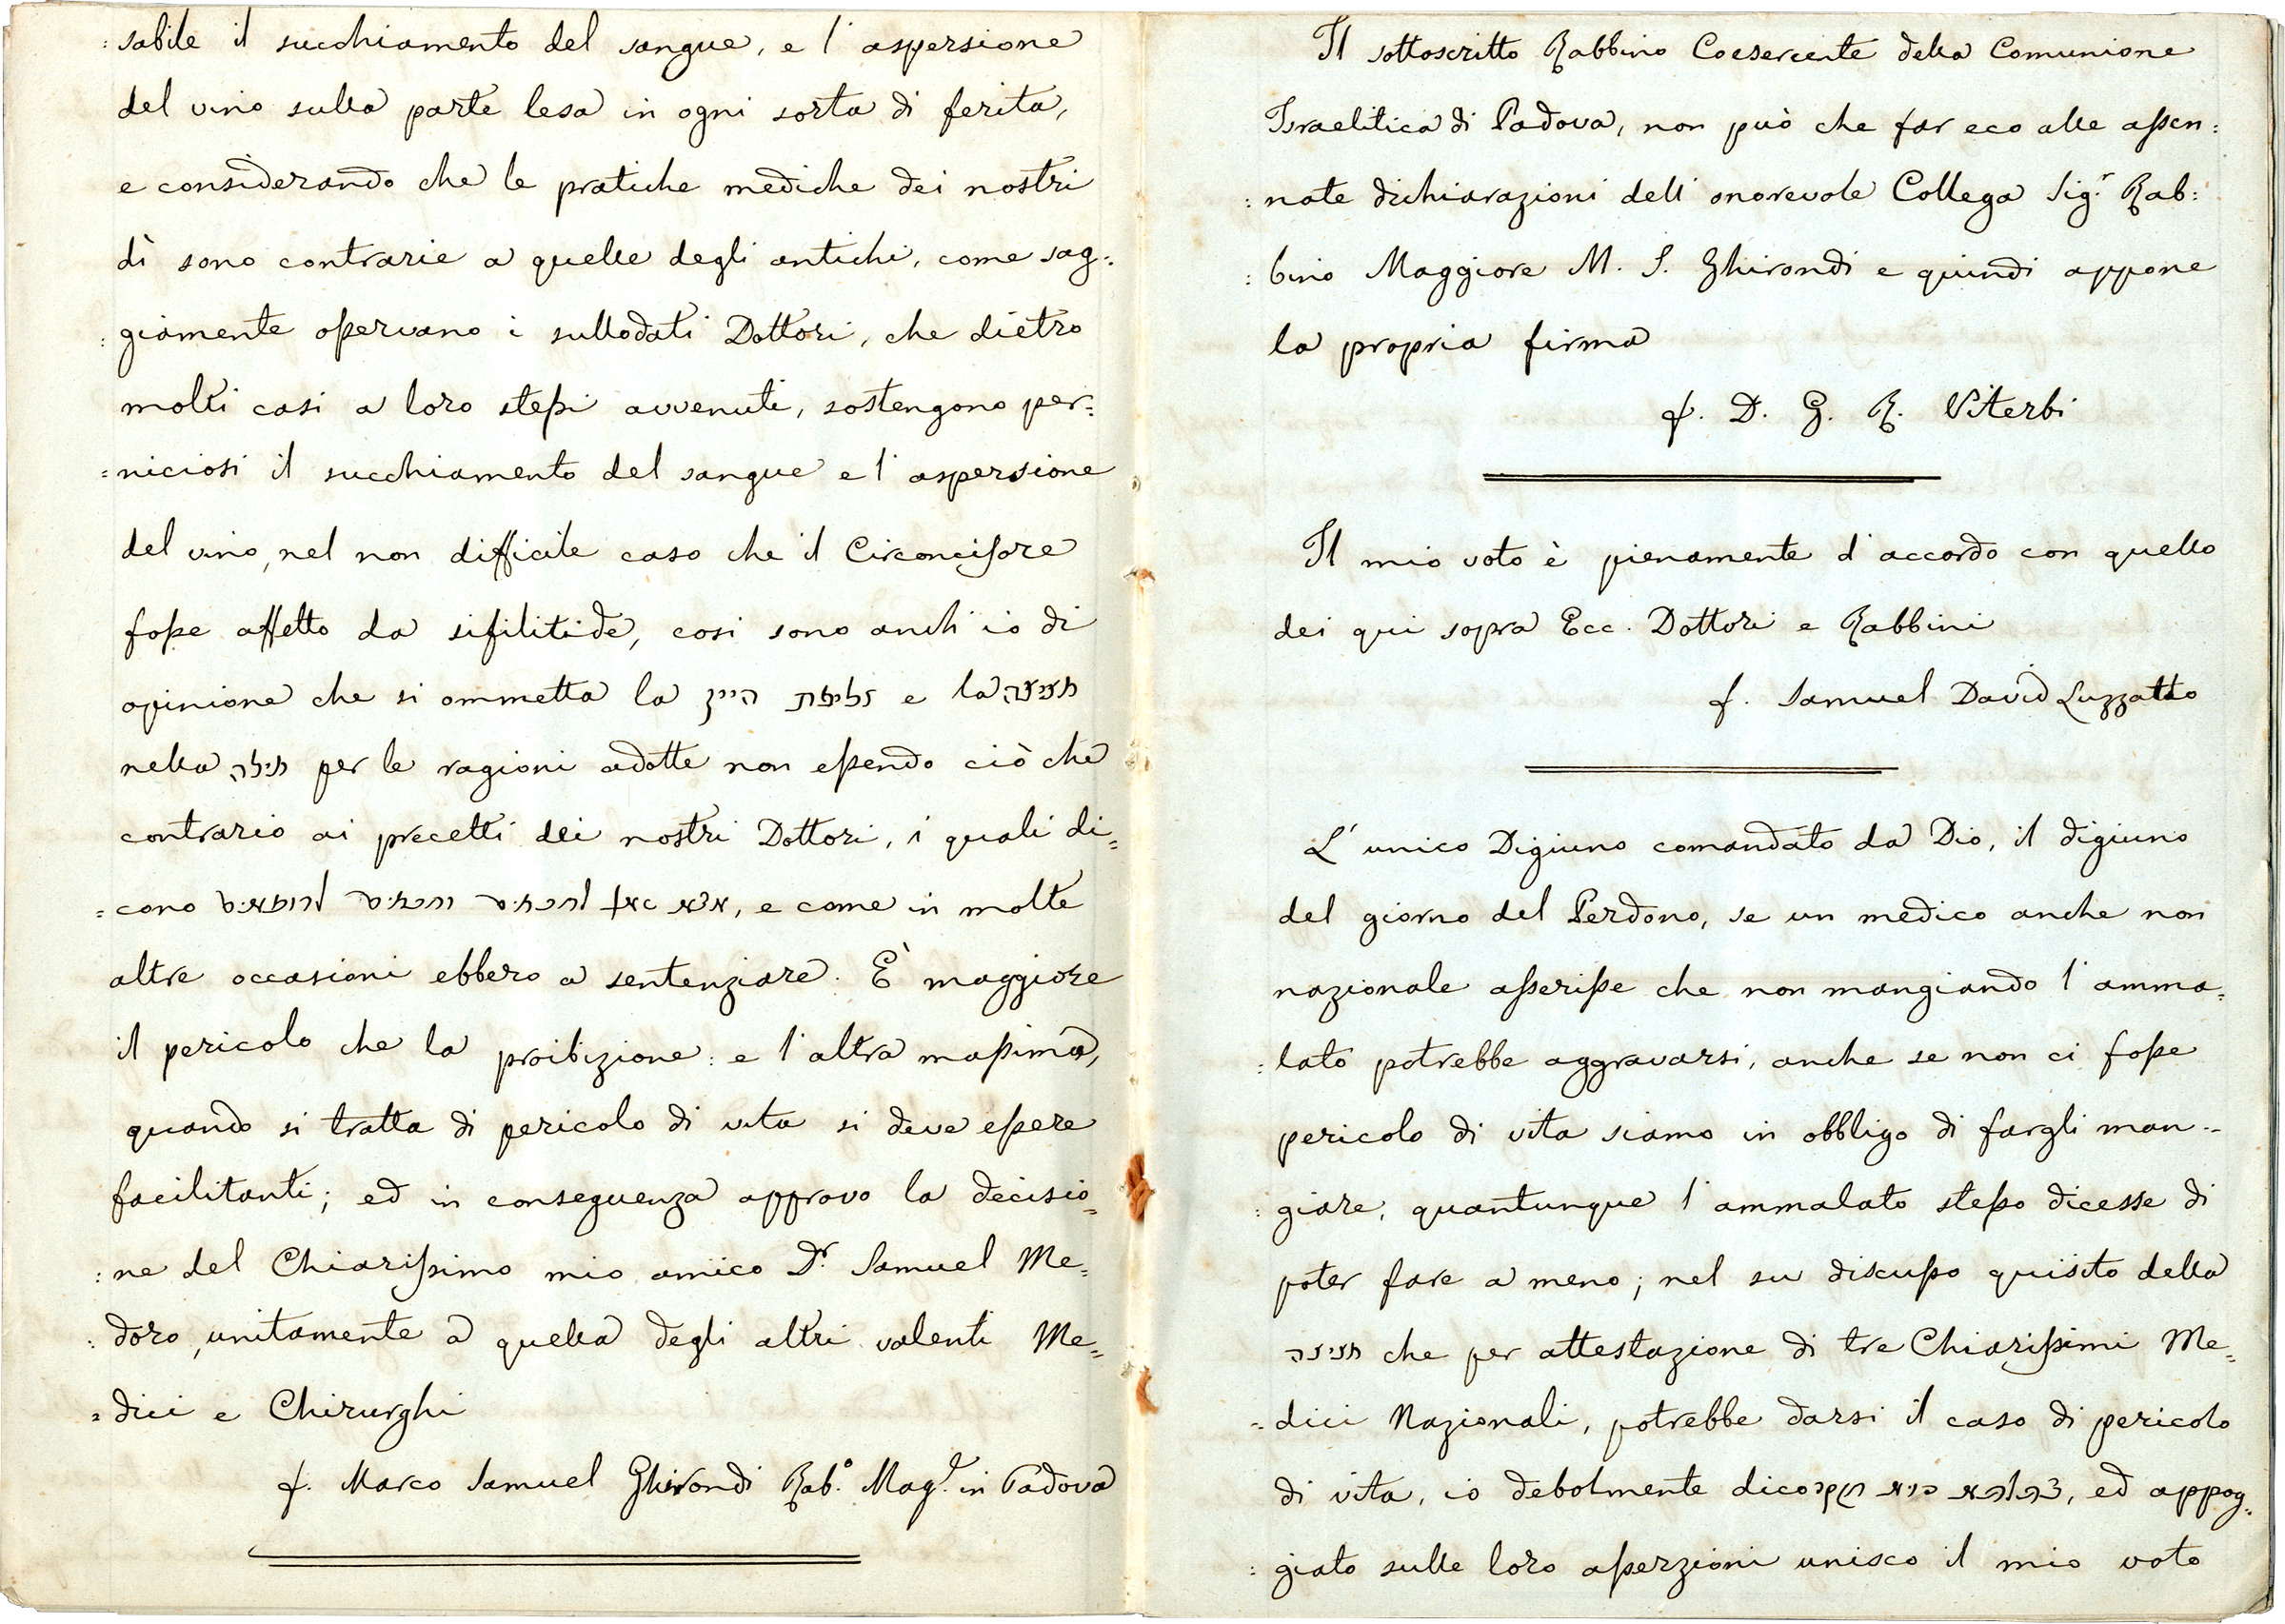 :sabile il succhiamento del sangue, e l'aspersione
del vino sulla parte lesa in ogni sorta di ferita,
e considerando che le pratiche mediche dei nostri
dì sono contrarie a quelle degli antichi, come sag:
:giamente osservano i sullodati Dottori, che dietro
molti casi a loro stessi avvenuti, sostengono per:
=niciosi il succhiamento del sangue e l'aspersione
del vino, nel non difficile caso che il Circoncisore
fosse affetto da sifilitide, così sono anch'io di
opinione che si ommetta la היין e la מציצה
nella מילה per le ragioni adotte non essendo ciò che
contrario ai precetti dei nostri Dottori, i quali di=
=cono, e come in molte
altre occasioni ebbero a sentenziare. È maggiore
il pericolo che la proibizione: e l'altra massima,
quando si tratta di pericolo di vita si deve essere
facilitanti; ed in conseguenza approvo la decisio=
:ne del Chiarissimo mio amico Dr. Samuel Me=
:doro, unitamente a quella degli altri valenti Me=
=dici e Chirurghi
f. Marco Samuel Ghirondi Rab.o Mag.e in Padova
Il sottoscritto Rabbino Coesercente della Comunione
Israelitica di Padova, non può che far eco alle assen:
:nate dichiarazioni dell'onorevole Collega Sig.r Rab:
:bino Maggiore M. S. Ghirondi e quindi appone
la propria firma
f. D. G. R. Viterbi
Il mio voto è pienamente d'accordo con quello
dei qui sopra Ecc. Dottori e Rabbini
f. Samuel David Luzzatto
L'unico Digiuno comandato da Dio, il digiuno
del giorno del Perdono, se un medico anche non
nazionale asserisse che non mangiando l'amma=
:lato potrebbe aggravarsi, anche se non ci fosse
pericolo di vita siamo in obbligo di fargli man=
:giare, quantunque l'ammalato stesso dicesse di
poter fare a meno; nel su discusso quisito della
מציצה che per attestazione di tre Chiarissimi Me=
=dici Nazionali, potrebbe darsi il caso di pericolo
di vita, io debolmente dico, ed appog=
:giato sulle loro asserzioni unisco il mio voto